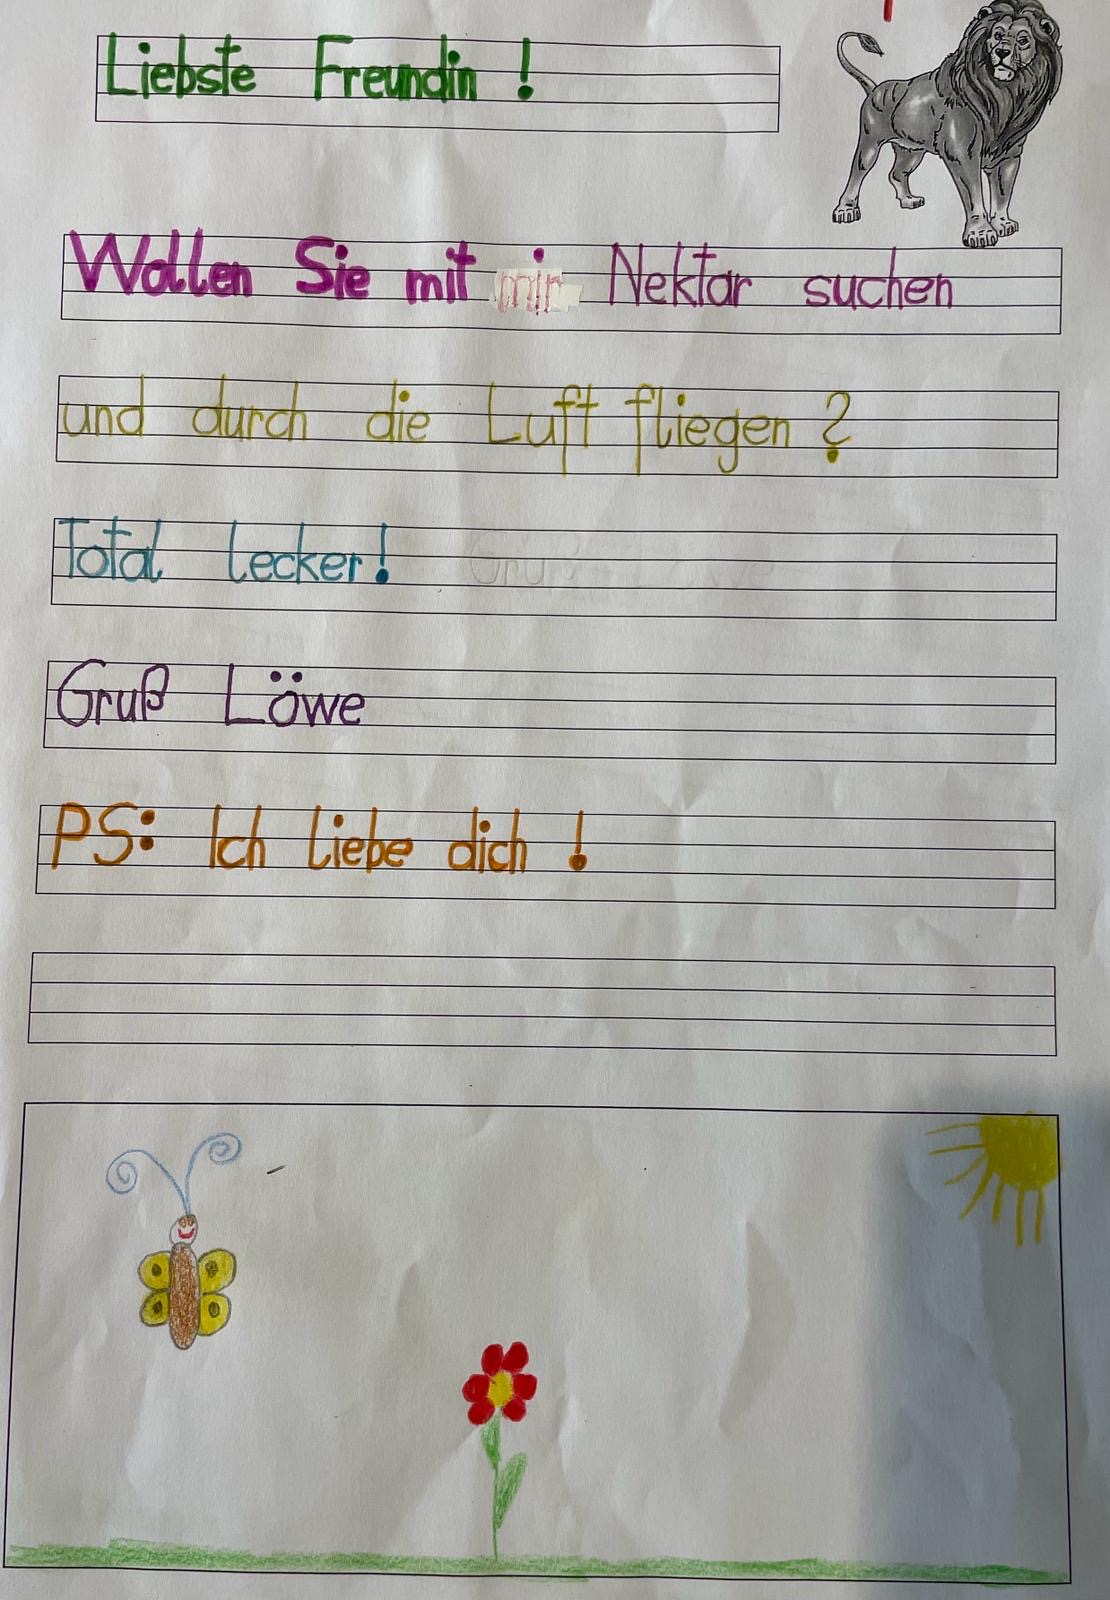 Liebste Freundin !
Wollen Sie mit mir Nektar suchen
und durch die Luft fliegen ?
Total lecker!
Gruß Löwe
PS: Ich liebe dich !